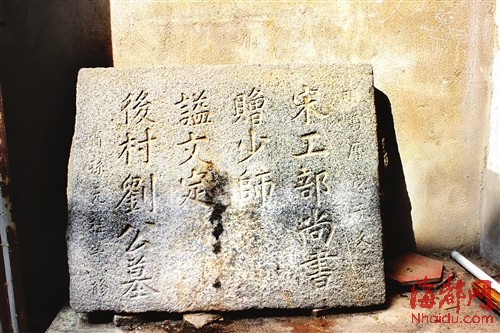 宋工部尚書
贈少師
謚文定
後村劉公墓
海都网
Nhaidu.com